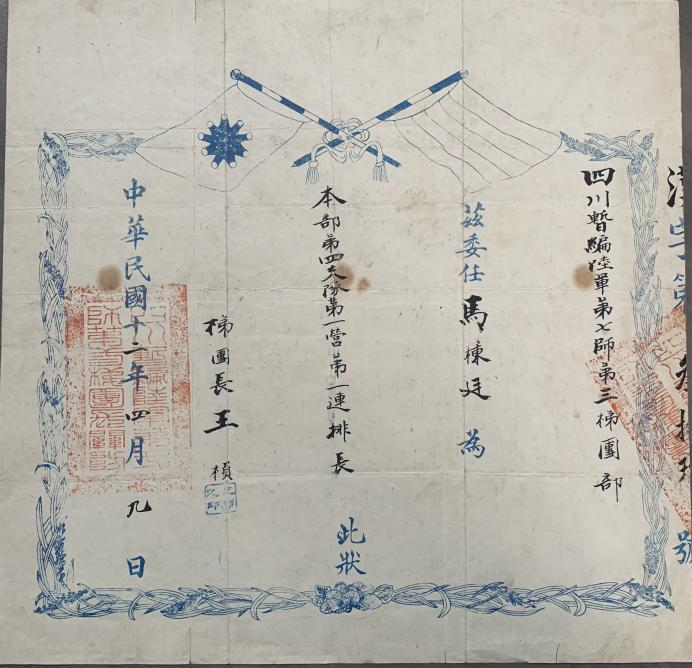 字第號
四川暫編陸軍第七師第三梯團部
茲委任馬棟廷為
本部第四支隊第一營第一連排長
此狀
梯團長王楨
中華民國十二年四月九日